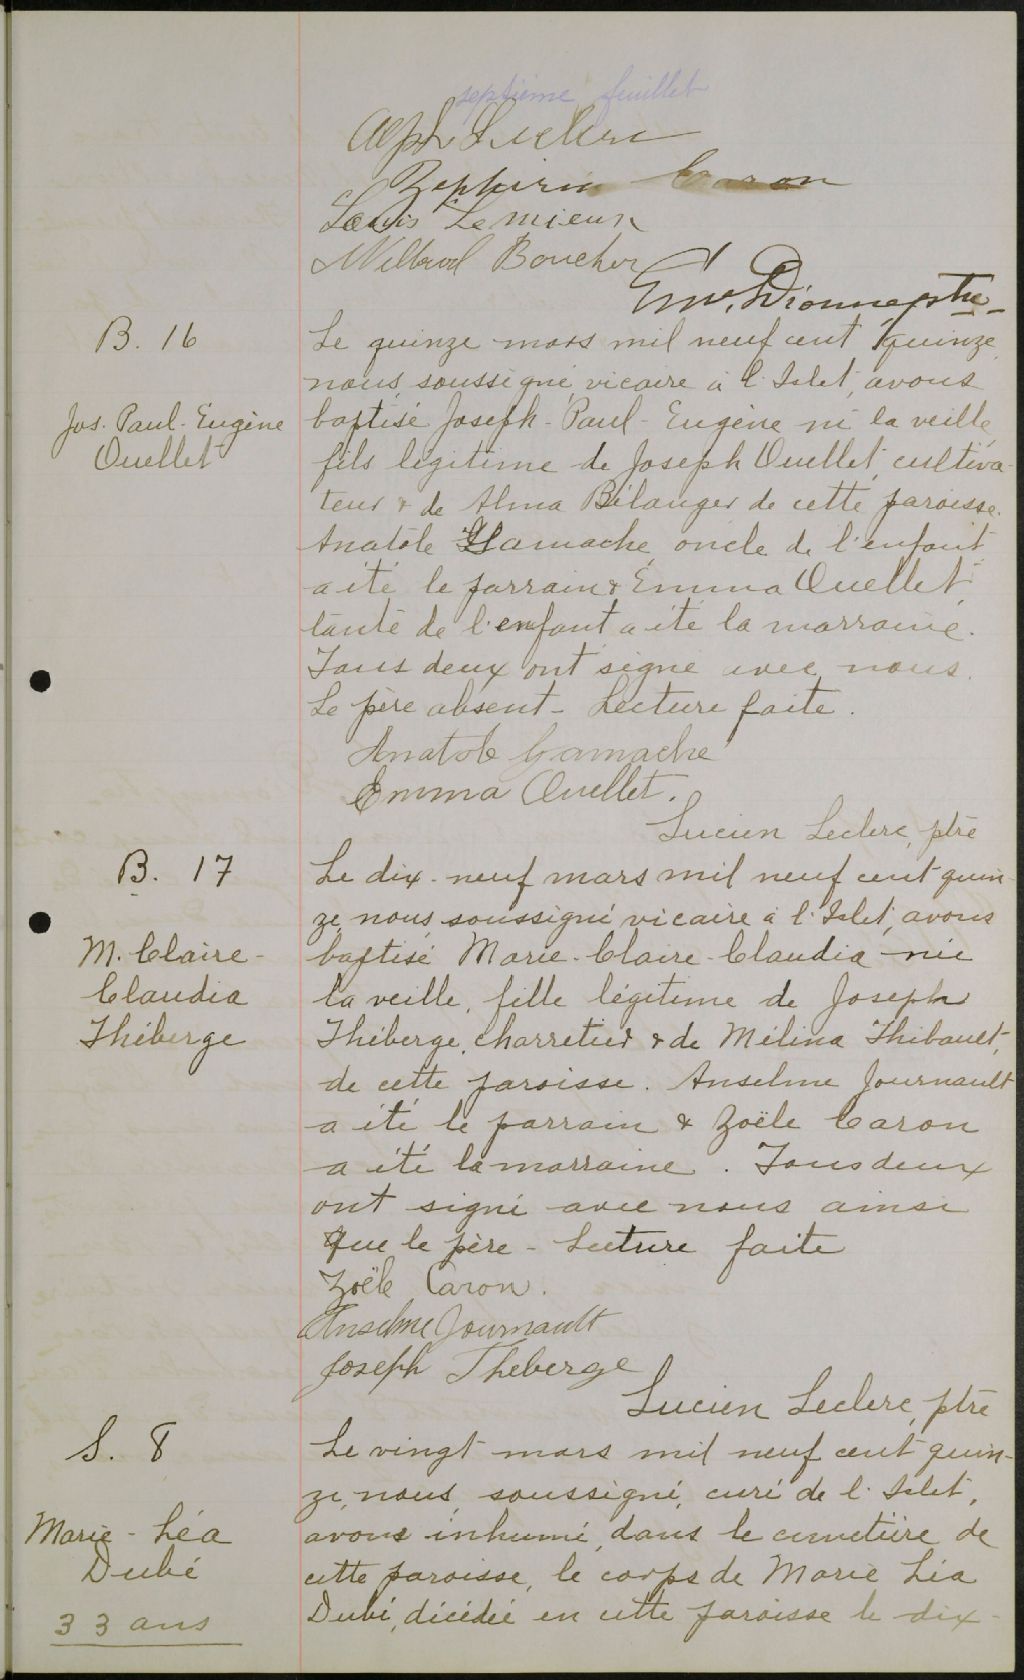 septième feuillet
Alph Leclerc
Zephirin Caron
Louis Lemieux
Wilbrod Boucher
Em. Dionne ptre
B. 16
Jos. Paul-Eugène
Ouellet
Le quinze mars mil neuf cent quinze,
nous, soussigné, vicaire à l'Islet, avons
baptisé Joseph-Paul-Eugène né la veille,
fils légitime de Joseph Ouellet, cultiva-
teur & de Alma Bélanger de cette paroisse.
Anatole Gamache, oncle de l'enfant
a été le parrain & Emma Ouellet,
tante de l'enfant a été la marraine.
Tous deux ont signé avec nous.
Le père absent - Lecture faite.
Anatole Gamache
Emma Ouellet.
Lucien Leclerc, ptre
B. 17
M. Claire-
Claudia
Théberge
Le dix-neuf mars mil neuf cent quin-
ze, nous soussigné, vicaire à l'Islet, avons
baptisé Marie-Claire-Claudia née
la veille, fille légitime de Joseph
Théberge, charretier & de Mélina Thibault,
de cette paroisse. Anselme Journault
a été le parrain & Zoële Caron
a été la marraine. Tous deux
ont signé avec nous ainsi
que le père - Lecture faite
Zoële Caron.
Anselme Journault
Joseph Theberge
Lucien Leclerc, ptre
S. 8
Marie-Léa
Dubé
33 ans
Le vingt mars mil neuf cent quin-
ze, nous, soussigné, curé de l'Islet,
avons inhumé, dans le cimetière de
cette paroisse, le corps de Marie Léa
Dubé, décédée en cette paroisse le dix-